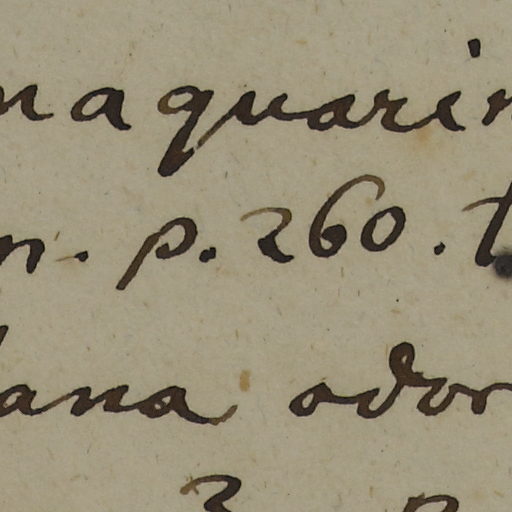 naquarin
n. p. 260. t
ana odor